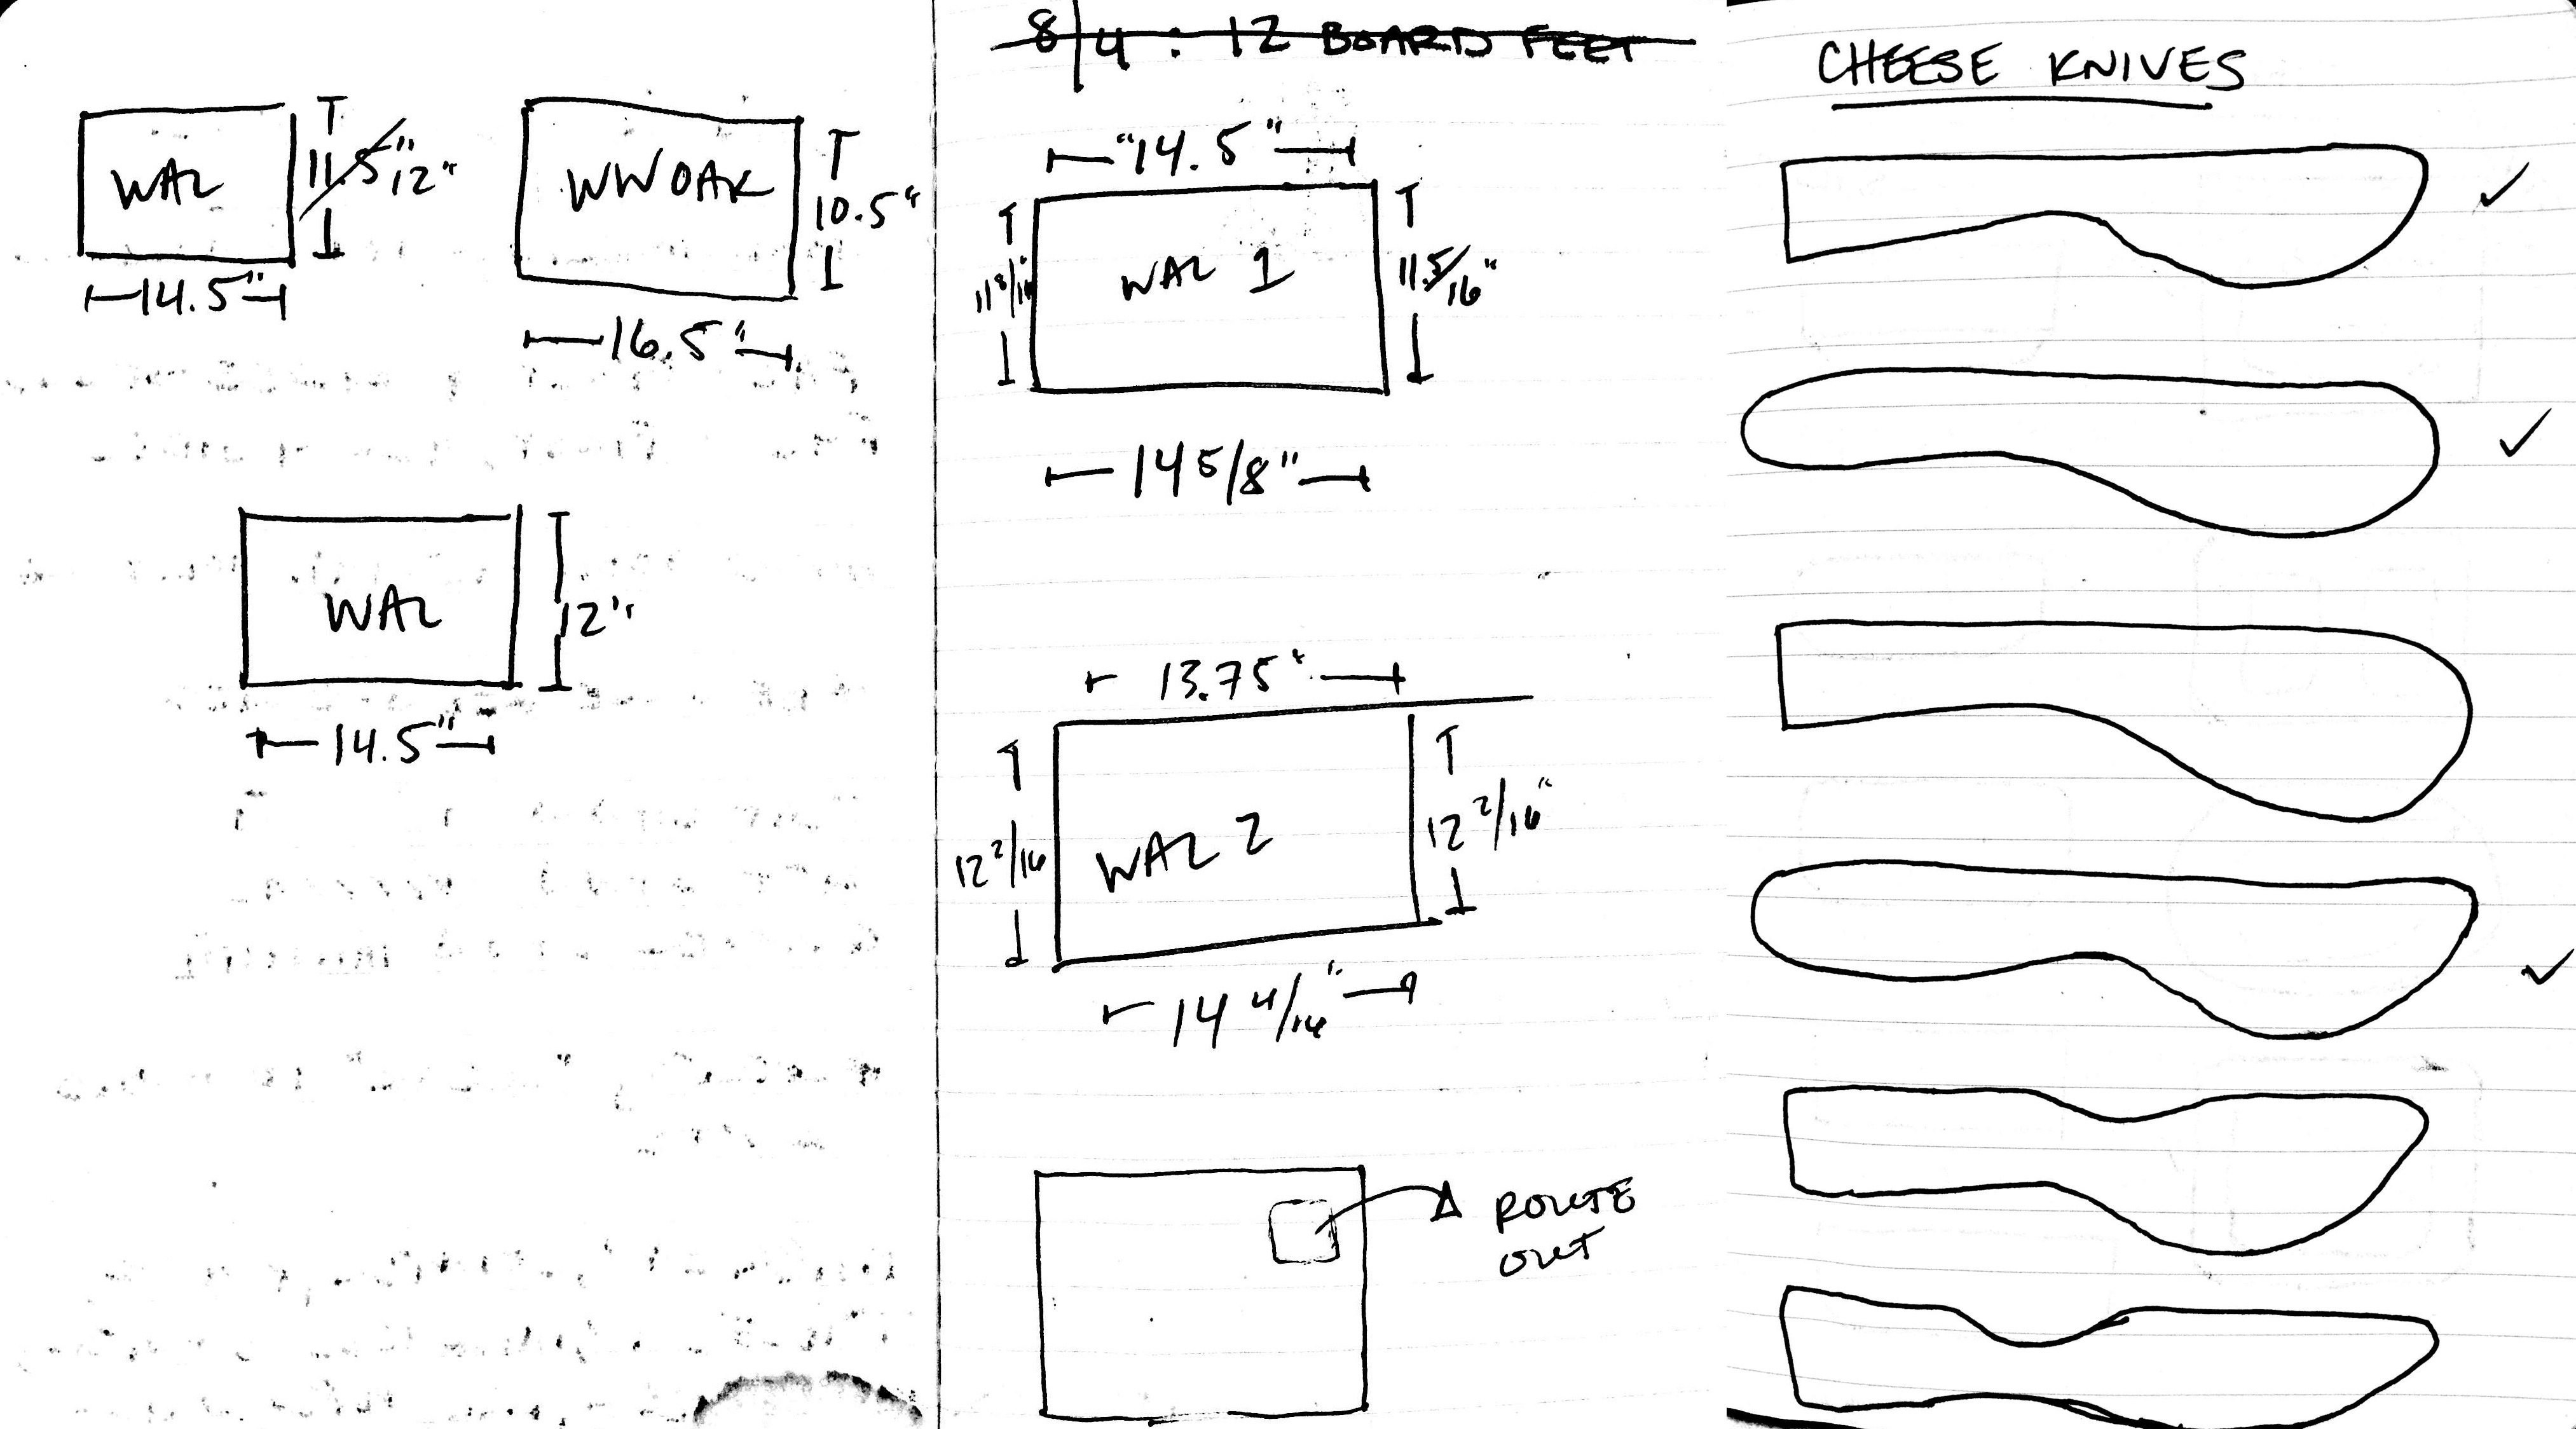 WAL
11.5" 12"
14.5"
WW OAK
10.5"
16.5"
WAL
12"
14.5"
8/4 : 12 BOARD FEET
"14.5"
WAL 1
11 5/16"
14 5/8"
13.75"
12 2/16
WAL 2
12 2/16"
14 4/16"
ROUTE
OUT
CHEESE KNIVES